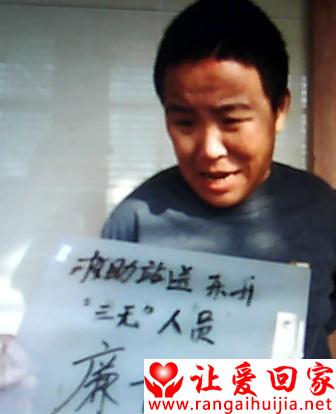 救助站送
"三无"人员
廉
让爱回家
www.rangaihuijia.net